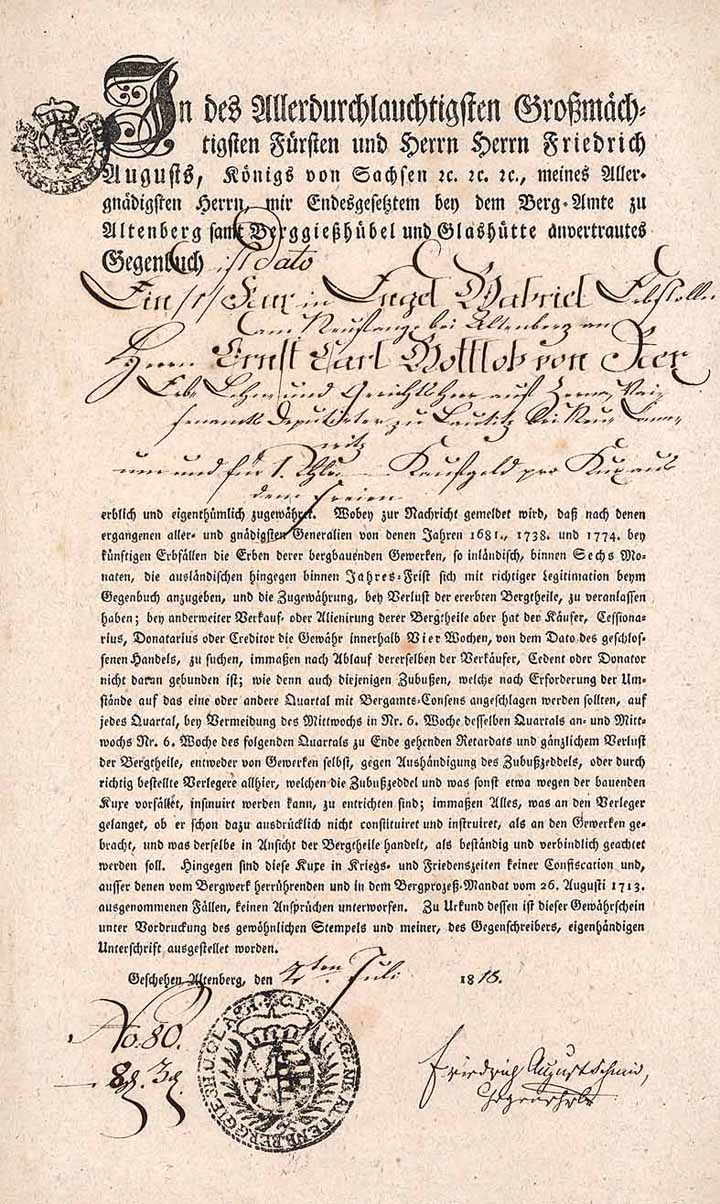 In des Allerdurchlauchtigsten Großmäch-
tigsten Fürsten und Herrn Herrn Friedrich
Augusts, Königs von Sachsen ꝛc. ꝛc. ꝛc., meines Aller-
gnädigsten Herrn, mir Endesgesetztem bey dem Berg-Amte zu
Altenberg samt Berggießhübel und Glashütte anvertrautes
Gegenbuch ist dato
Ein /1/ Kux in Engel Gabriel Erbstolln
am Neufange bei Altenberg an
Herrn Ernst Carl Gottlob von
Erb- Lehn- und Gerichtsherr auf
Deputirter zu Lautitz bei
um und für 1. Thlr. Kaufgeld pro Kux aus
dem Freien
erblich und eigenthümlich zugewähret. Wobey zur Nachricht gemeldet wird, daß nach denen
ergangenen aller- und gnädigsten Generalien von denen Jahren 1681., 1738. und 1774. bey
künftigen Erbfällen die Erben derer bergbauenden Gewerken, so inländisch, binnen Sechs Mo-
naten, die ausländischen hingegen binnen Jahres-Frist sich mit richtiger Legitimation beym
Gegenbuch anzugeben, und die Zugewährung, bey Verlust der ererbten Bergtheile, zu veranlassen
haben; bey anderweiter Verkauf- oder Alienirung derer Bergtheile aber hat der Käufer, Cessiona-
rius, Donatarius oder Creditor die Gewähr innerhalb Vier Wochen, von dem Dato des geschlos-
senen Handels, zu suchen, immaßen nach Ablauf dererselben der Verkäufer, Cedent oder Donator
nicht daran gebunden ist; wie denn auch diejenigen Zubußen, welche nach Erforderung der Um-
stände auf das eine oder andere Quartal mit Bergamts-Consens angeschlagen werden sollten, auf
jedes Quartal, bey Vermeidung des Mittwochs in Nr. 6. Woche desselben Quartals an- und Mitt-
wochs Nr. 6. Woche des folgenden Quartals zu Ende gehenden Retardats und gänzlichem Verlust
der Bergtheile, entweder von Gewerken selbst, gegen Aushändigung des Zubußzeddels, oder durch
richtig bestellte Verlegere allhier, welchen die Zubußzeddel und was sonst etwa wegen der bauenden
Kuxe vorfället, insinuirt werden kann, zu entrichten sind; immaßen Alles, was an den Verleger
gelanget, ob er schon dazu ausdrücklich nicht constituiret und instruiret, als an den Gewerken ge-
bracht, und was derselbe in Ansicht der Bergtheile handelt, als beständig und verbindlich geachtet
werden soll. Hingegen sind diese Kuxe in Kriegs- und Friedenszeiten keiner Confiscation und,
ausser denen vom Bergwerk herrührenden und in dem Bergprozeß-Mandat vom 26. Augusti 1713.
ausgenommenen Fällen, keinen Ansprüchen unterworfen. Zu Urkund dessen ist dieser Gewährschein
unter Vordruckung des gewöhnlichen Stempels und meiner, des Gegenschreibers, eigenhändigen
Unterschrift ausgestellet worden.
Geschehen Altenberg, den 2ten Juli 1818.
No. 80.
8 g. 3 g.
Friedrich August Schmid,
Gegenschrbr.